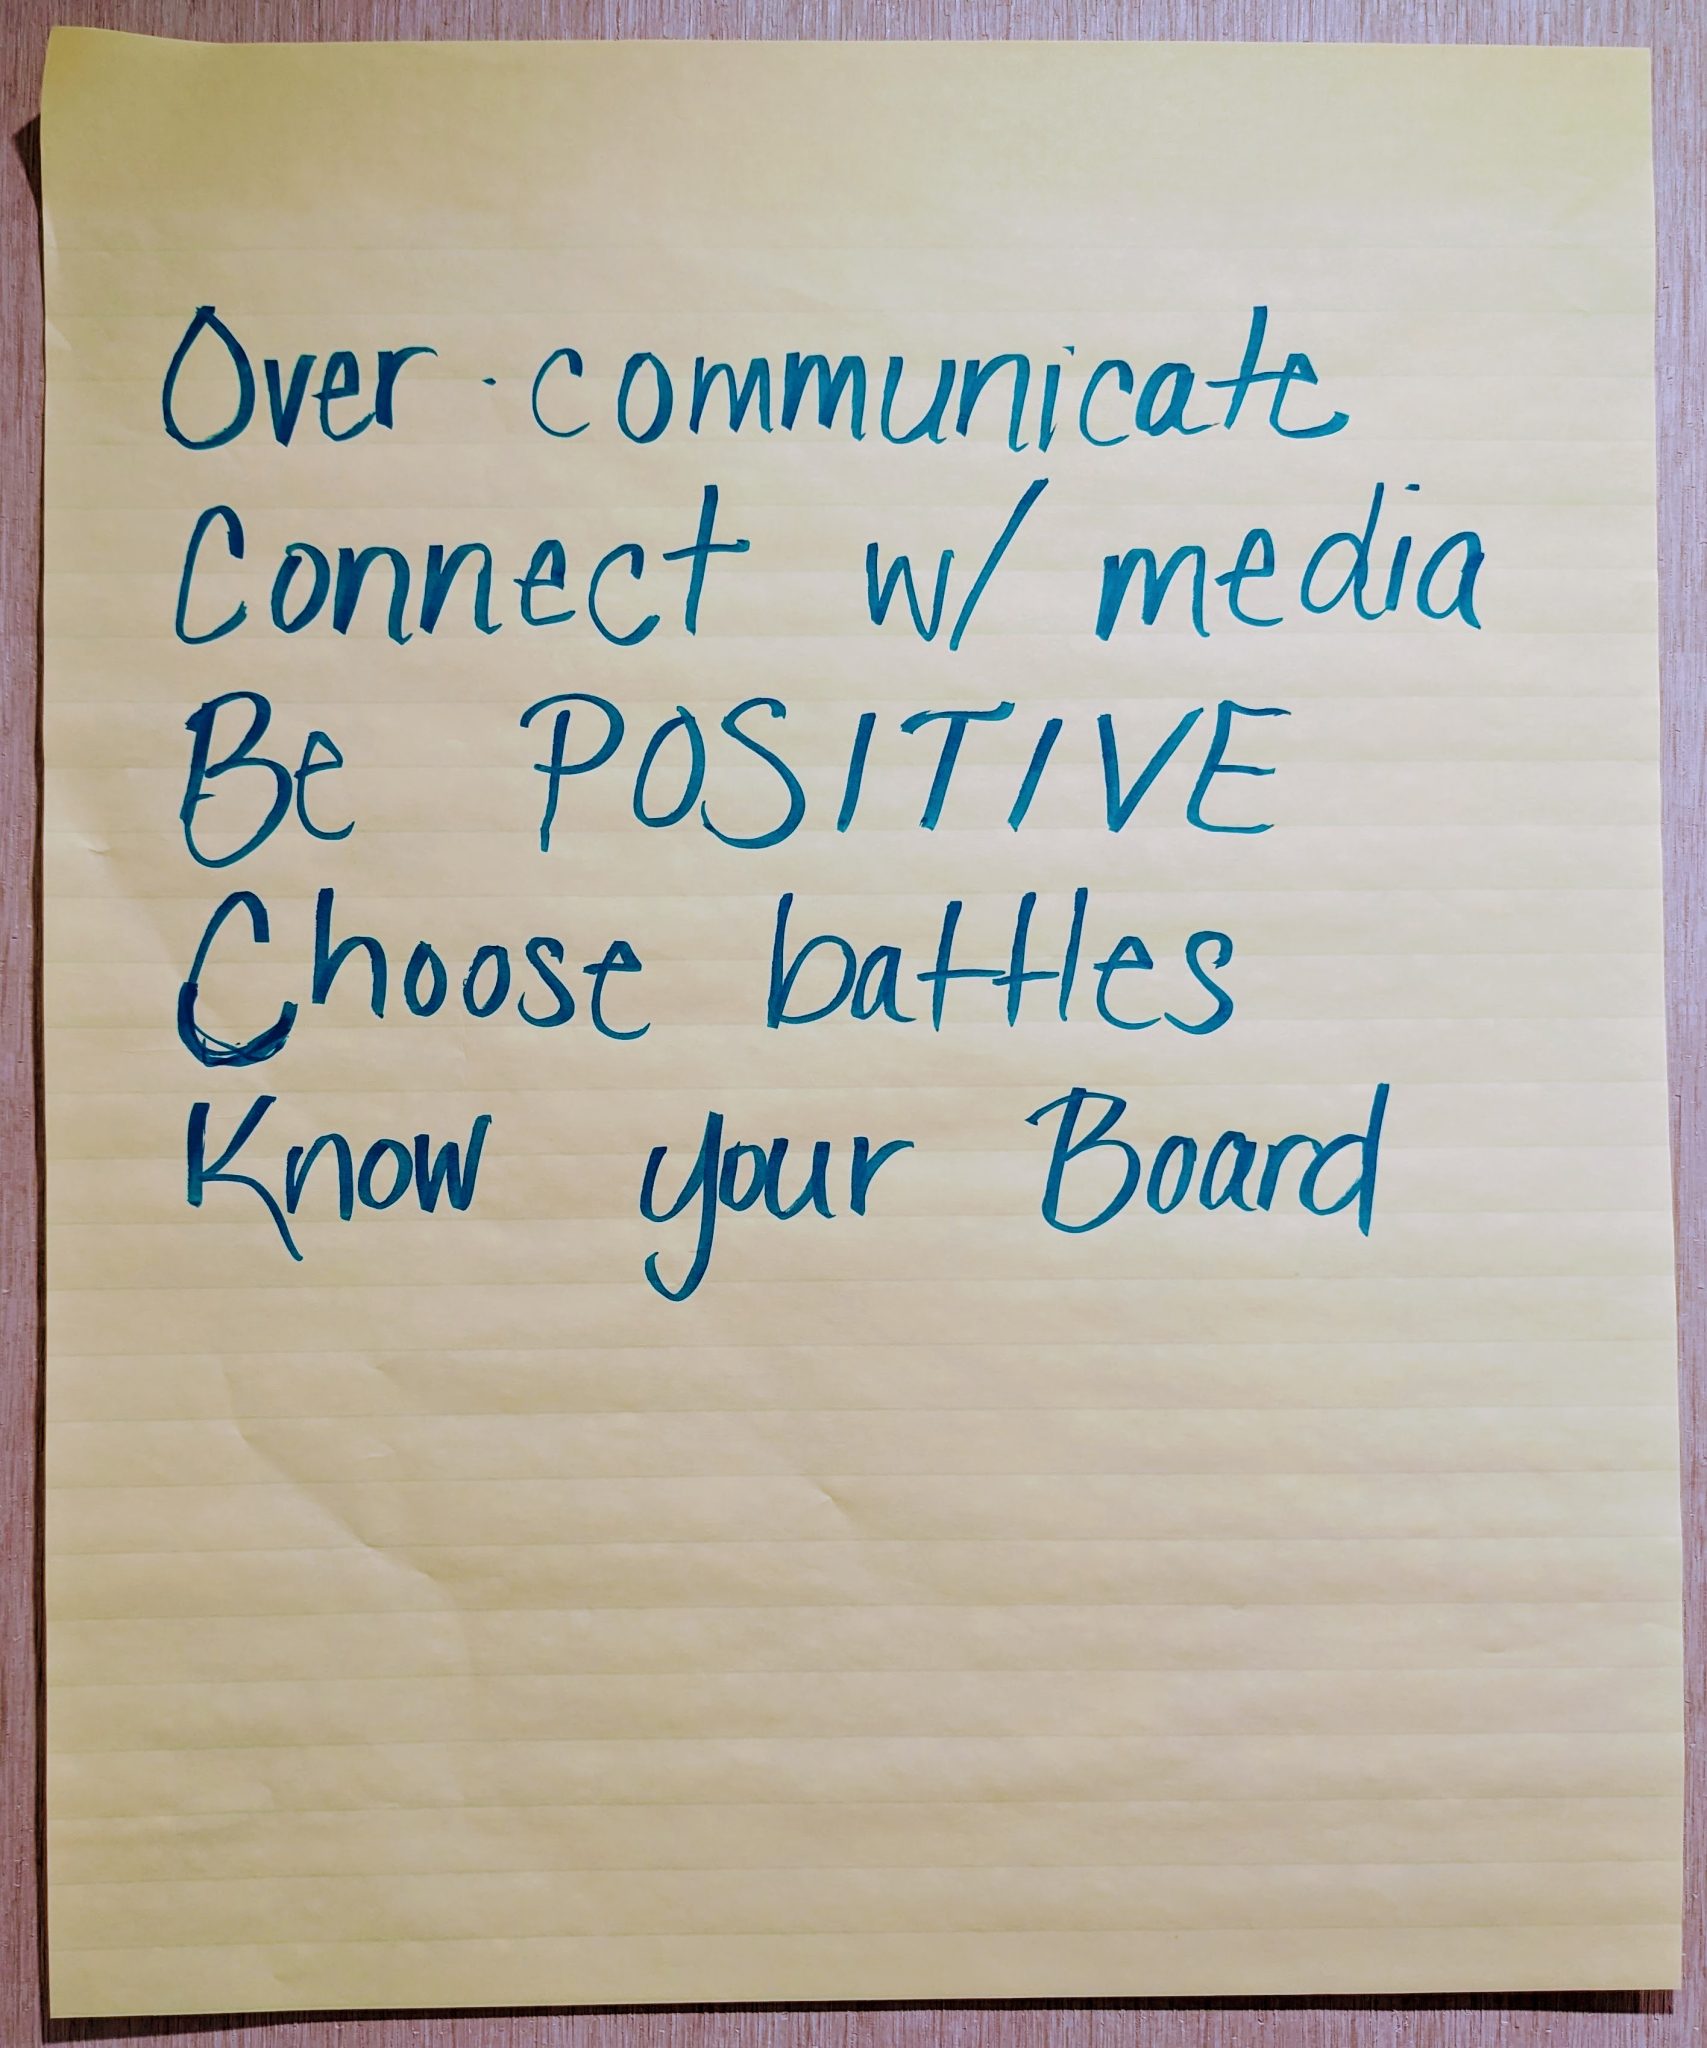 Over-communicate
Connect w/ media
Be POSITIVE
Choose battles
Know your Board